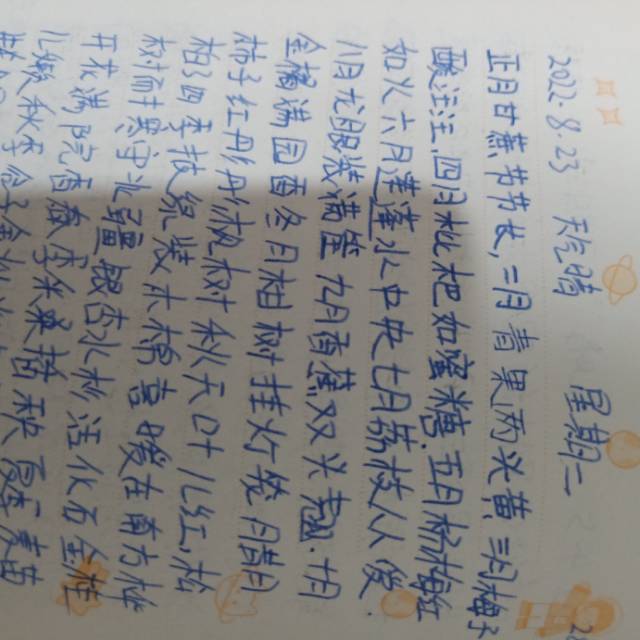 2022.8.23 晴 星期二
正月甘蔗节节长,二月青果两头黄 三月梅子
酸汪汪.四月枇杷如蜜糖.五月杨梅红
如火六月莲蓬水中央七月荔枝人人爱
八月龙眼装满筐 九月香蕉双头翘.十月
金橘满园香冬月柑树挂灯笼 腊月
柿子红彤彤 枫树秋天叶儿红,松
柏四季披绿装木棉喜暖在南方 桦
树耐寒守北疆 银杏水杉活化石金桂
开花满院香 春季